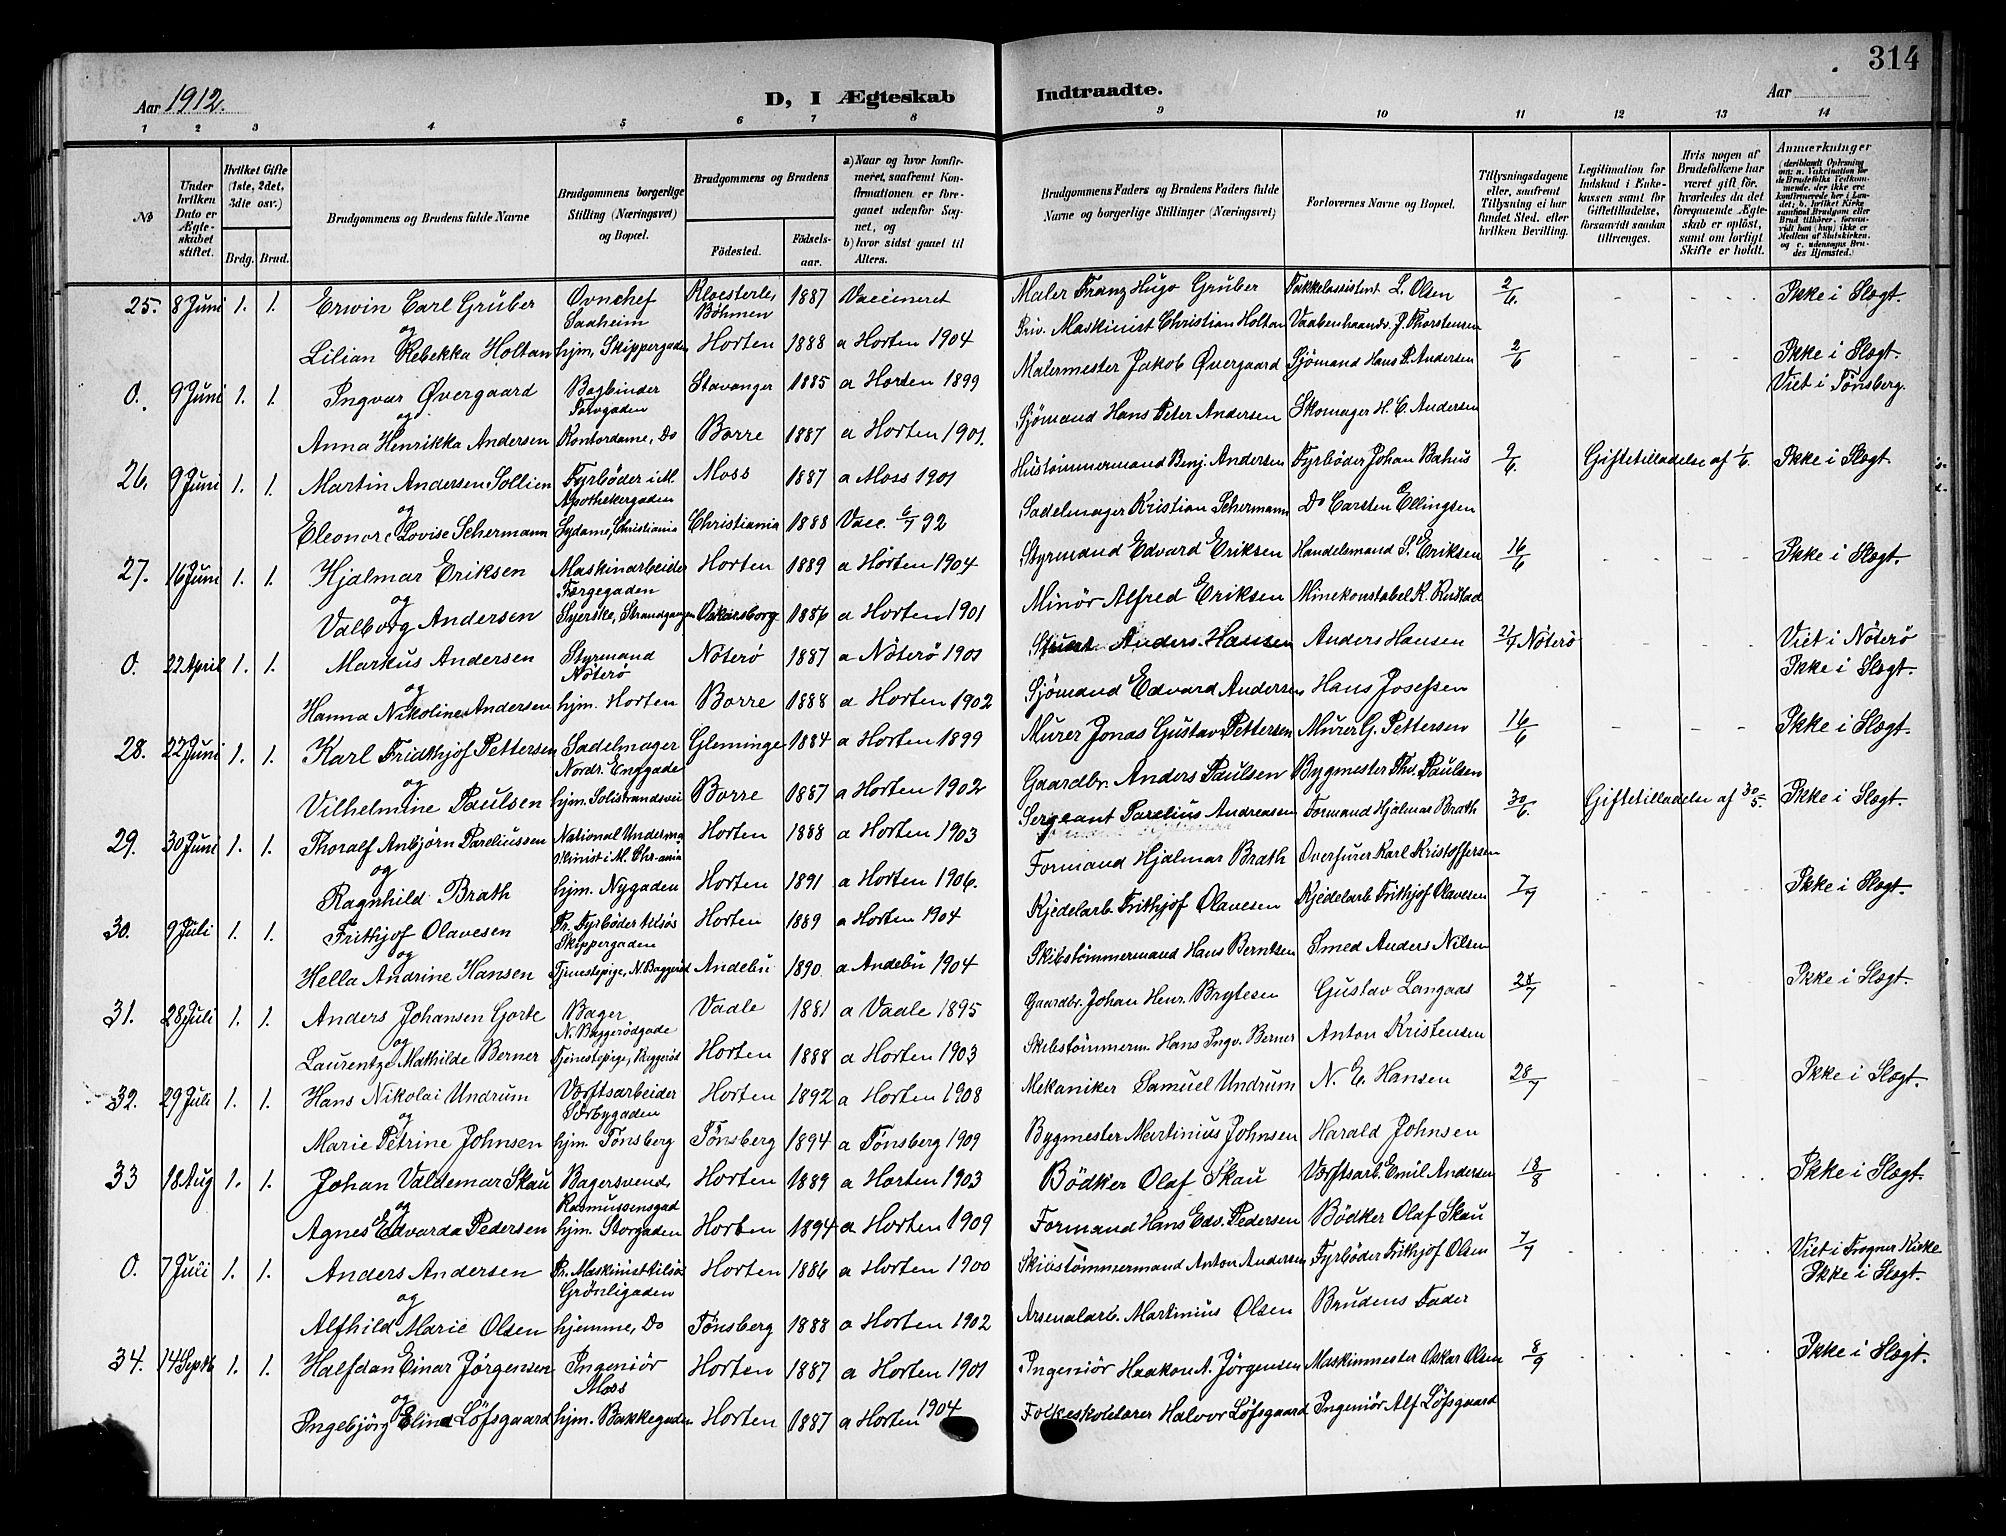 314
Aar 1912.
D, I Ægteskab Indtraadte.
Aar
1 2 3 4 5 6 7 8 9 10 11 12 13 14
No
Under hvilken Dato er Ægteskabet stiftet.
Hvilket Gifte (1ste, 2det, 3die osv.)
Brdg. Brud.
Brudgommens og Brudens fulde Navne
Brudgommens borgerlige Stilling (Næringsvei) og Bopæl.
Brudgommens og Brudens
Födested. Födsels-aar.
a) Naar og hvor konfirmeret, saafremt Konfirmationen er foregaaet udenfor Sognet, og
b) hvor sidst gaaet til Alters.
Brudgommens Faders og Brudens Faders fulde Navne og borgerlige Stillinger (Næringsvei)
Forlovernes Navne og Bopæl.
Tillysningsdagene eller, saafremt Tillysning ei har fundet Sted, efter hvilken Bevilling.
Legitimation for Indskud i Enkekassen samt for Giftetilladelse, forsaavidt saadan tiltrænges.
Hvis nogen af Brudefolkene har været gift för, hvorledes da det foregaaende Ægteskab er oplöst, samt om lovligt Skifte er holdt.
Anmærkninger
25. 8 Juni 1. 1. Erwin Carl Gruber Ovnchef Saaheim Kloesterle, Böhmen 1887 Vaccineret Maler Franz Hugo Gruber Takkelassistent L. Olsen 2/6. Ikke i Slægt.
og
Lilian Rebekka Holtan hjm, Skippergaden Horten 1888 a Horten 1904 Priv. Maskinist Christian Holtan Vaabenhaandv. J. Thorstensen
0. 9 Juni 1. 1. Ingvar Øvergaard Bogbinder Torvgaden Stavanger 1885 a Horten 1899 Malermester Jakob Øvergaard Sjömand Hans P. Andersen 2/6 Ikke i Slægt. Viet i Tönsberg.
og
Anna Henrikka Andersen Kontordame, Do Borre 1887 a Horten 1901. Sjömand Hans Peter Andersen Skomager H. C. Andersen
26. 9 Juni 1. 1. Martin Andersen Sollien Fyrböder i M. Apothekergaden Moss 1887 a Moss 1901 Hustömmermand Benj. Andersen Fyrböder Johan Bahus 9/6. Giftetilladelse af 1/6. Ikke i Slægt
og
Eleonore Lovise Schermann Sydame, Christiania Christiania 1888 Vacc. 6/7 92 Sadelmager Kristian Schermann Do Carsten Ellingsen
27. 16 Juni 1. 1. Hjalmar Eriksen Maskinarbeider Færgegaden Horten 1889 a Horten 1904 Styrmand Edvard Eriksen Handelsmand S. Eriksen 16/6 Ikke i Slægt.
og
Valborg Andersen Syerske, Strandgangen Oskarsborg 1886 a Horten 1901 Minör Alfred Eriksen Minekonstabel K. Rustad
0. 22 April 1. 1. Markus Andersen Styrmand Nöterö Nöterö 1887 a Nöterö 1901 Anders Hansen Anders Hansen 21/4 Nöterö Viet i Nöterö Ikke i Slægt.
og
Hanna Nikoline Andersen hjm. Horten Borre 1888 a Horten 1902 Sjömand Edvard Andersen Hans Josefsen
28. 22 Juni 1. 1. Karl Fridthjof Pettersen Sadelmager Nordr. Enggade Gleminge 1884 a Horten 1899 Murer Jonas Gustav Pettersen Murer G. Pettersen 16/6 Ikke i Slægt.
og
Vilhelmine Paulsen hjm. Solistrandsvei Borre 1887 a Horten 1902 Gaardbr. Anders Paulsen Bygmester Ths. Paulsen
29. 30 Juni 1. 1. Thoralf Anbjörn Pareliussen National Underma skinist i M. Chr-ania Horten 1888 a Horten 1903 Sergeant Parelius Andreasen Formand Hjalmar Brath 30/6. Giftetilladelse af 30/5. Ikke i Slægt.
og
Ragnhild Brath hjm. Nygaden Horten 1891 a Horten 1906. Formand Hjalmar Brath Overfurer Karl Kristoffersen
30. 9 Juli 1. 1. Frithjof Olavesen Pr. Fyrböder tilsös Skippergaden Horten 1889 a Horten 1904 Kjedelarb. Frithjof Olavesen Kjedelarb. Frithjof Olavesen 7/7 Ikke i Slægt.
og
Hella Andrine Hansen Tjenestepige, N. Baggeröd Andebu 1890. a Andebu 1904 Skibstömmermand Hans Berntsen Smed Anders Nilsen
31. 28 Juli 1. 1. Anders Johansen Gorte Bager N. Baggerödgade Vaale 1881 a Vaale 1895 Gaardbr. Johan Henr. Brytesen Gustav Langaas 28/7 Ikke i Slægt.
og
Laurentze Mathilde Berner Tjenestepige, Baggeröd Horten 1888 a Horten 1903 Skibstömmerm. Hans Ingv. Berner Anton Kristensen
32. 29 Juli 1. 1. Hans Nikolai Undrum Værftsarbeider Sörbygaden Horten 1892 a Horten 1908 Mekaniker Samuel Undrum N. E. Hansen 28/7 Ikke i Slægt.
og
Marie Petrine Johnsen hjm. Tönsberg Tönsberg 1894 a Tönsberg 1909 Bygmester Martinius Johnsen Harald Johnsen
33 18 Aug 1. 1. Johan Valdemar Skau Bagersvend, Rasmussensgad Horten 1889 a Horten 1903 Bödker Olaf Skau Værftsarb. Emil Andersen 18/8 Ikke i Slægt.
og
Agnes Edvarda Pedersen hjm. Storgaden Horten 1894 a Horten 1909 Formand Hans Edv. Pedersen Bödker Olaf Skau
0. 7 Juli 1. 1. Anders Andersen Pr. Maskinist tilsös Grönligaden Horten 1886 a Horten 1900 Skibstömmermand Anton Andersen Fyrböder Frithjof Olsen 7/7 Viet i Frogner Kirke Ikke i Slægt.
og
Alfhild Marie Olsen hjemme, Do Tönsberg 1888 a Horten 1902 Arsenalarb. Martinius Olsen Brudens Fader
34. 14 Septb 1. 1. Halfdan Einar Jørgensen Ingeniör Moss Horten 1887 a Horten 1901 Ingeniör Haakon A. Jørgensen Maskinmester Oskar Olsen 8/9 Ikke i Slægt.
og
Ingebjörg Elina Löfsgaard hjm. Bakkegaden Horten 1887 a Horten 1904 Folkeskolelærer Halvor Löfsgaard Ingeniör Alf Löfsgaard